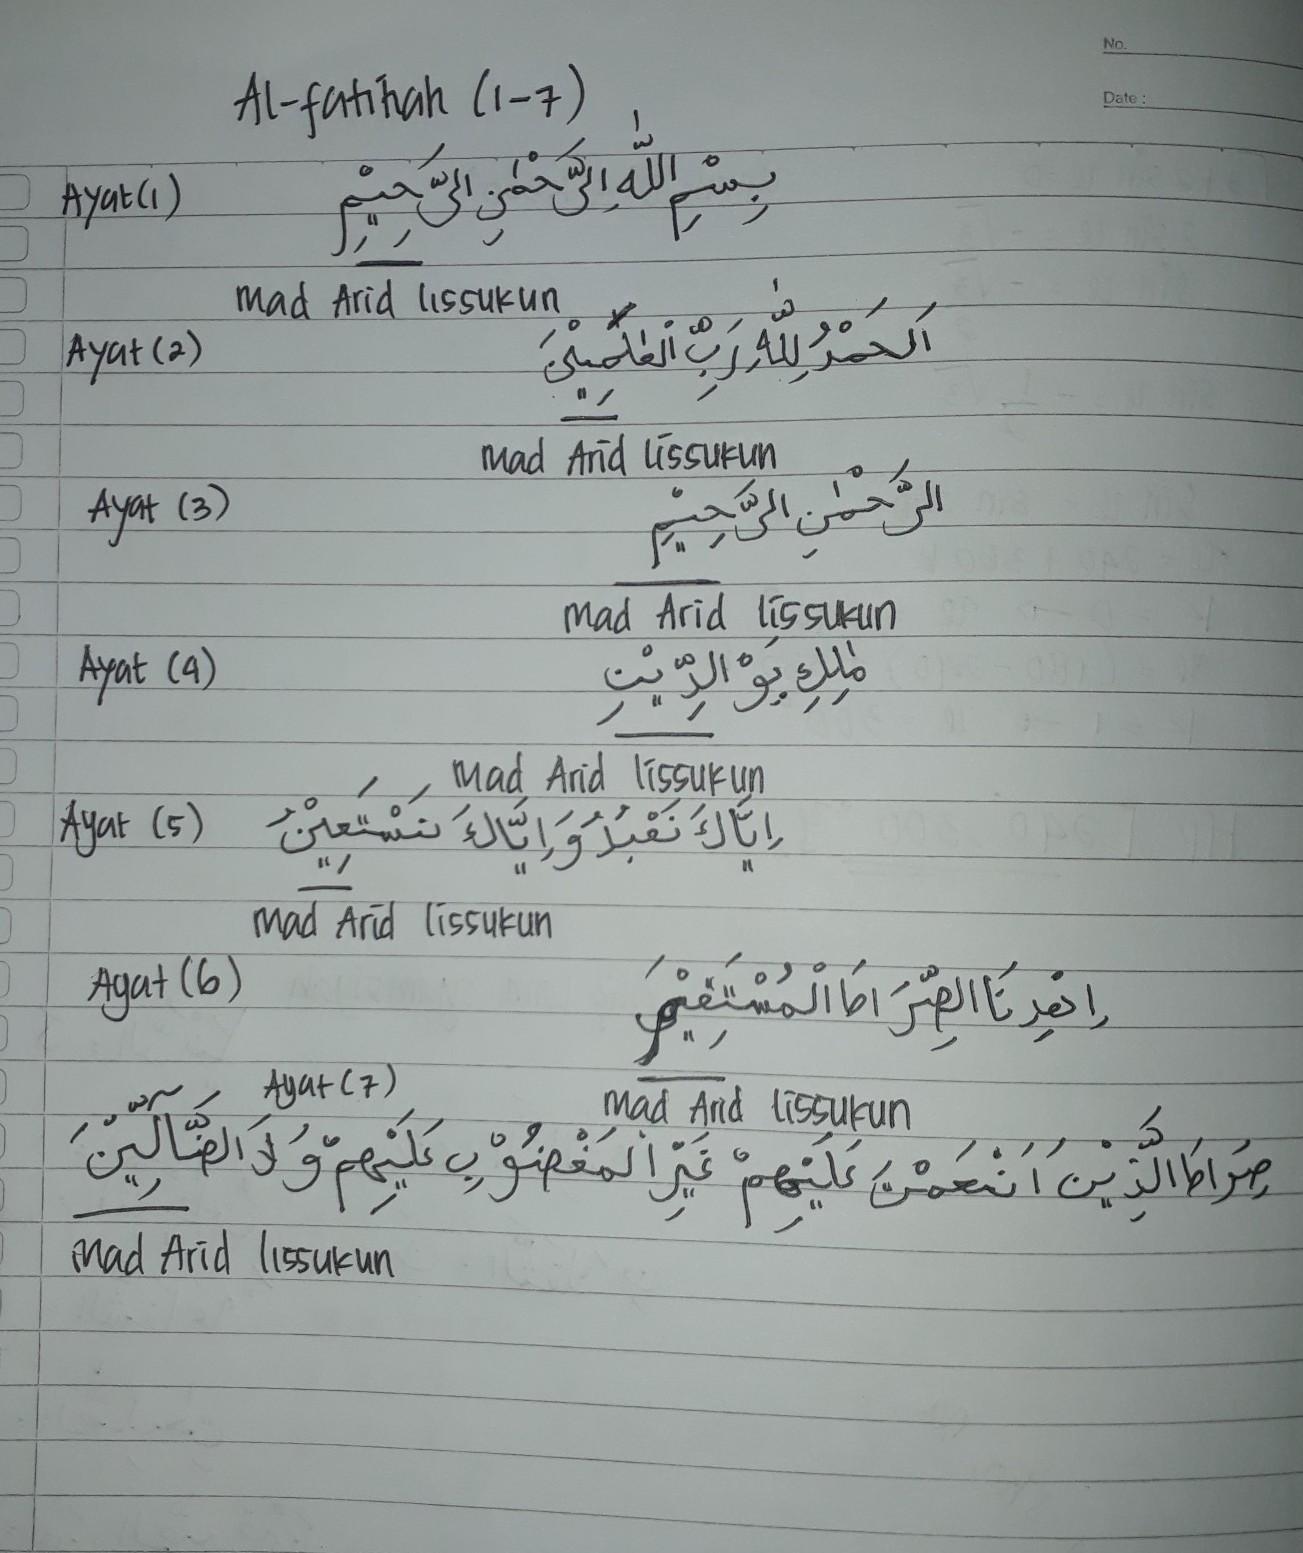 No.
Date :
Al-fatihah (1-7)
Ayat (1) بِسْمِ اللّٰهِ الرَّحْمٰنِ الرَّحِيْمِ
Mad Arid lissukun
Ayat (2) اَلْحَمْدُ لِلّٰهِ رَبِّ الْعٰلَمِيْنَ
Mad Arid lissukun
Ayat (3) الرَّحْمٰنِ الرَّحِيْمِ
Mad Arid lissukun
Ayat (4) مٰلِكِ يَوْ الدِّيْنِ
Mad Arid lissukun
Ayat (5) اِيَّاكَ نَعْبُدُ وَاِيَّاكَ نَسْتَعِيْنُ
Mad Arid lissukun
Ayat (6) اِهْدِنَا الصِّرَاطَ الْمُسْتَقِيْمَ
Mad Arid lissukun
Ayat (7)
صِرَاطَ الَّذِيْنَ اَنْعَمْتَ عَلَيْهِمْ غَيْرِ الْمَغْضُوْبِ عَلَيْهِمْ وَلَا الضَّآلِّيْنَ
Mad Arid lissukun